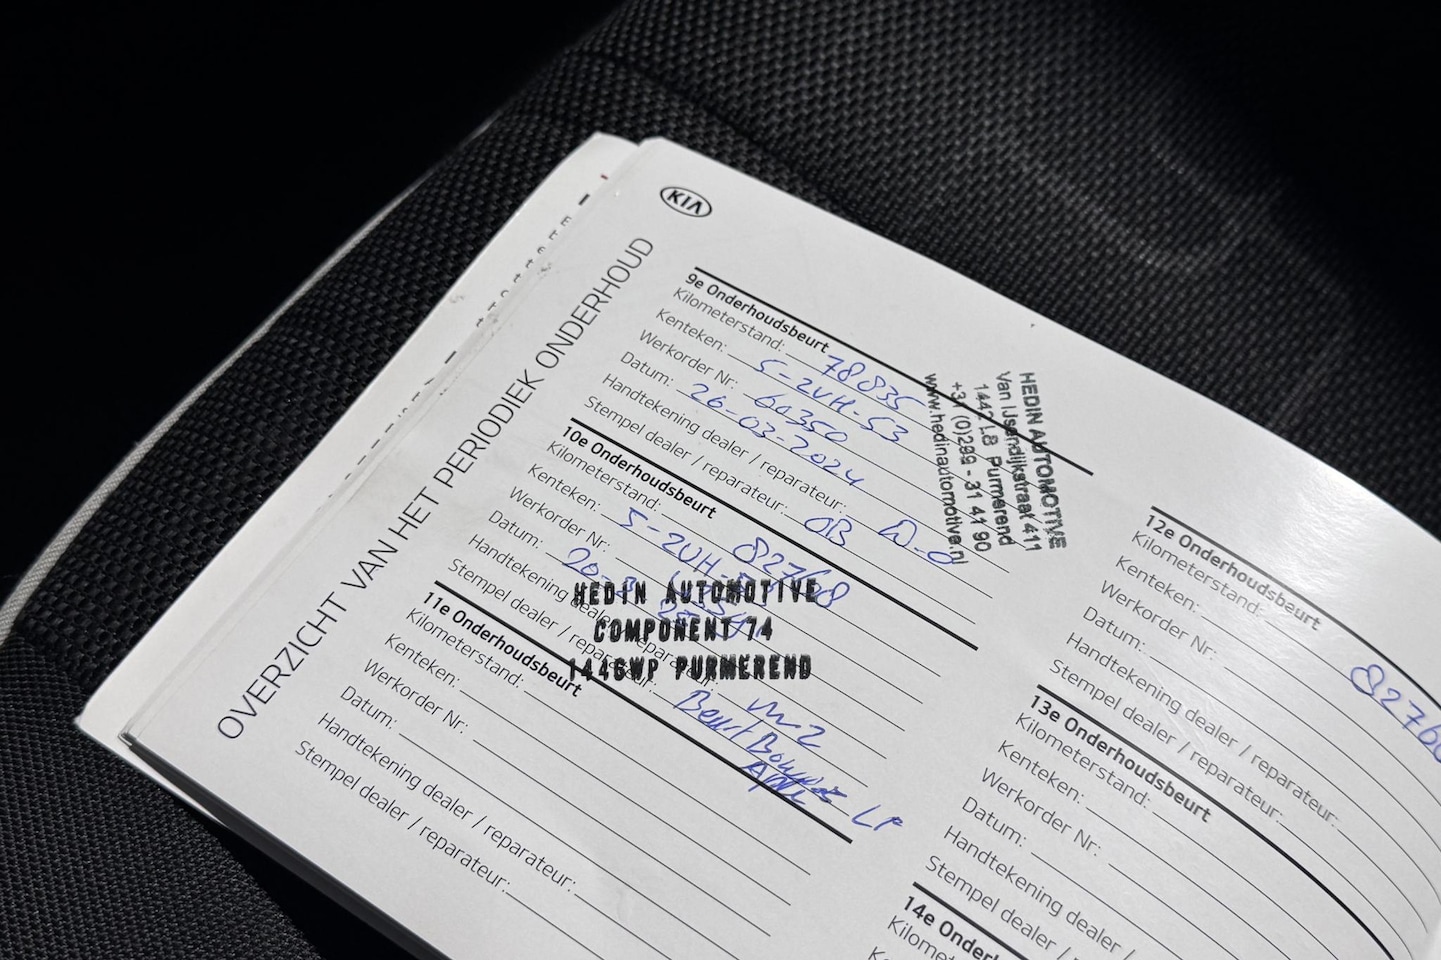 KIA
OVERZICHT VAN HET PERIODIEK ONDERHOUD
9e Onderhoudsbeurt
Kilometerstand: 78835
Kenteken: S-ZVH-53
Werkorder Nr: 60350
Datum: 26-03-2024
Handtekening dealer / reparateur:
Stempel dealer / reparateur: OB
HEDIN AUTOMOTIVE
Van IJsendijkstraat 411
1442 LB Purmerend
+31 (0)299 - 31 41 90
www.hedinautomotive.nl
10e Onderhoudsbeurt
Kilometerstand: 82768
Kenteken: S-ZVH-
Werkorder Nr:
Datum: 20-
Handtekening dealer / reparateur:
Stempel dealer / reparateur:
HEDIN AUTOMOTIVE
COMPONENT 74
1446WP PURMEREND
11e Onderhoudsbeurt
Kilometerstand:
Kenteken:
Werkorder Nr:
Datum:
Handtekening dealer / reparateur:
Stempel dealer / reparateur:
12e Onderhoudsbeurt
Kilometerstand: 8276
Kenteken:
Werkorder Nr:
Datum:
Handtekening dealer / reparateur:
Stempel dealer / reparateur:
13e Onderhoudsbeurt
Kilometerstand:
Kenteken:
Werkorder Nr:
Datum:
Handtekening dealer /
Stempel dealer /
14e Onder
Kilomet